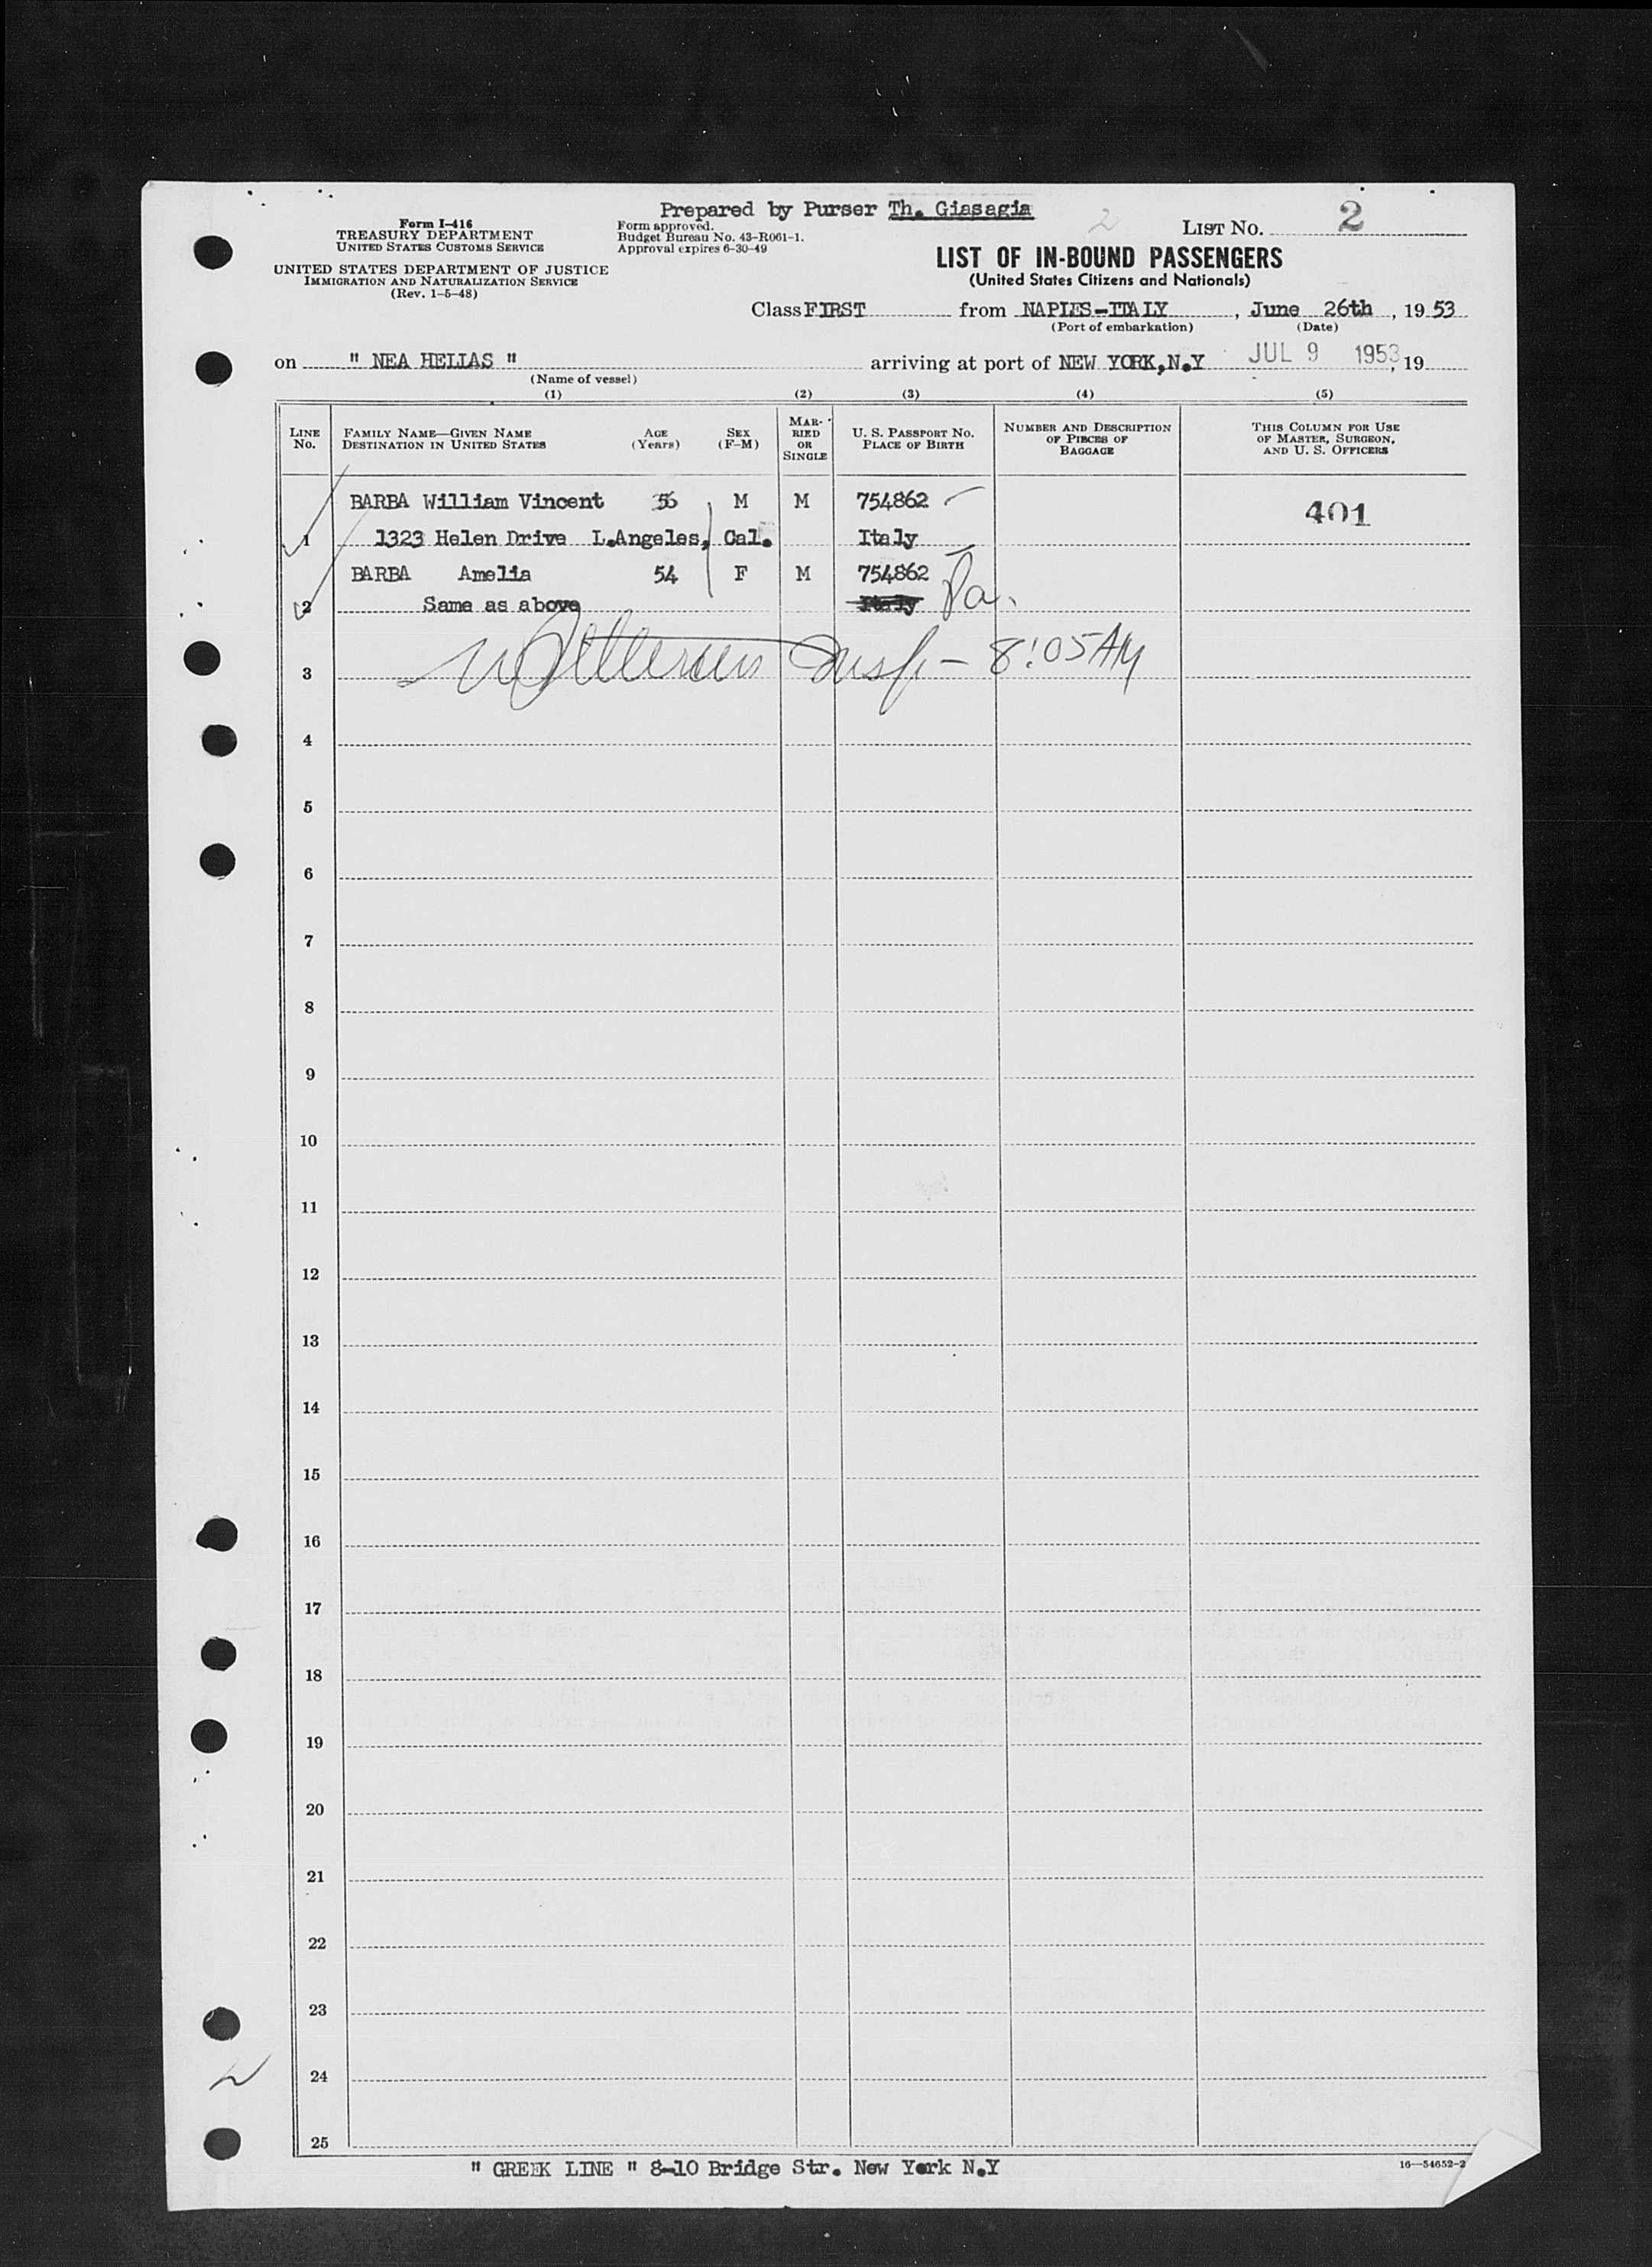 Prepared by Purser Th. Giasagia
Form I-416
TREASURY DEPARTMENT
UNITED STATES CUSTOMS SERVICE
UNITED STATES DEPARTMENT OF JUSTICE
IMMIGRATION AND NATURALIZATION SERVICE
(Rev. 1-5-48)
Form approved.
Budget Bureau No. 43-R061-1.
Approval expires 6-30-49
2
LIST NO. 2
LIST OF IN-BOUND PASSENGERS
(United States Citizens and Nationals)
Class FIRST from NAPLES-ITALY, June 26th, 19 53
(Port of embarkation) (Date)
on " NEA HELIAS " arriving at port of NEW YORK,N.Y JUL 9 1953, 19
(Name of vessel)
(1) (2) (3) (4) (5)
LINE No.
FAMILY NAME—GIVEN NAME
DESTINATION IN UNITED STATES
AGE (Years)
SEX (F-M)
MAR-RIED OR SINGLE
U. S. PASSPORT NO.
PLACE OF BIRTH
NUMBER AND DESCRIPTION OF PIECES OF BAGGAGE
THIS COLUMN FOR USE OF MASTER, SURGEON, AND U. S. OFFICERS
BARBA William Vincent 56 M M 754862 401
1 1323 Helen Drive L.Angeles, Cal. Italy
BARBA Amelia 54 F M 754862
2 Same as above Italy Pa.
3 Insp- 8:05AM
4
5
6
7
8
9
10
11
12
13
14
15
16
17
18
19
20
21
22
23
24
25
" GREEK LINE " 8-10 Bridge Str. New York N.Y
16—54652-2